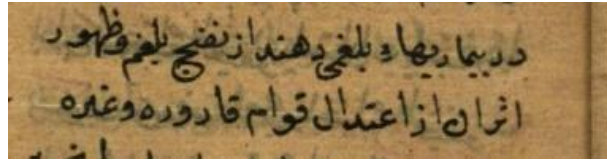 در بیماریهاء بلغمی دهند از نضج بلغم و ظهور
اثران از اعتدال قوام قاروره وغیره